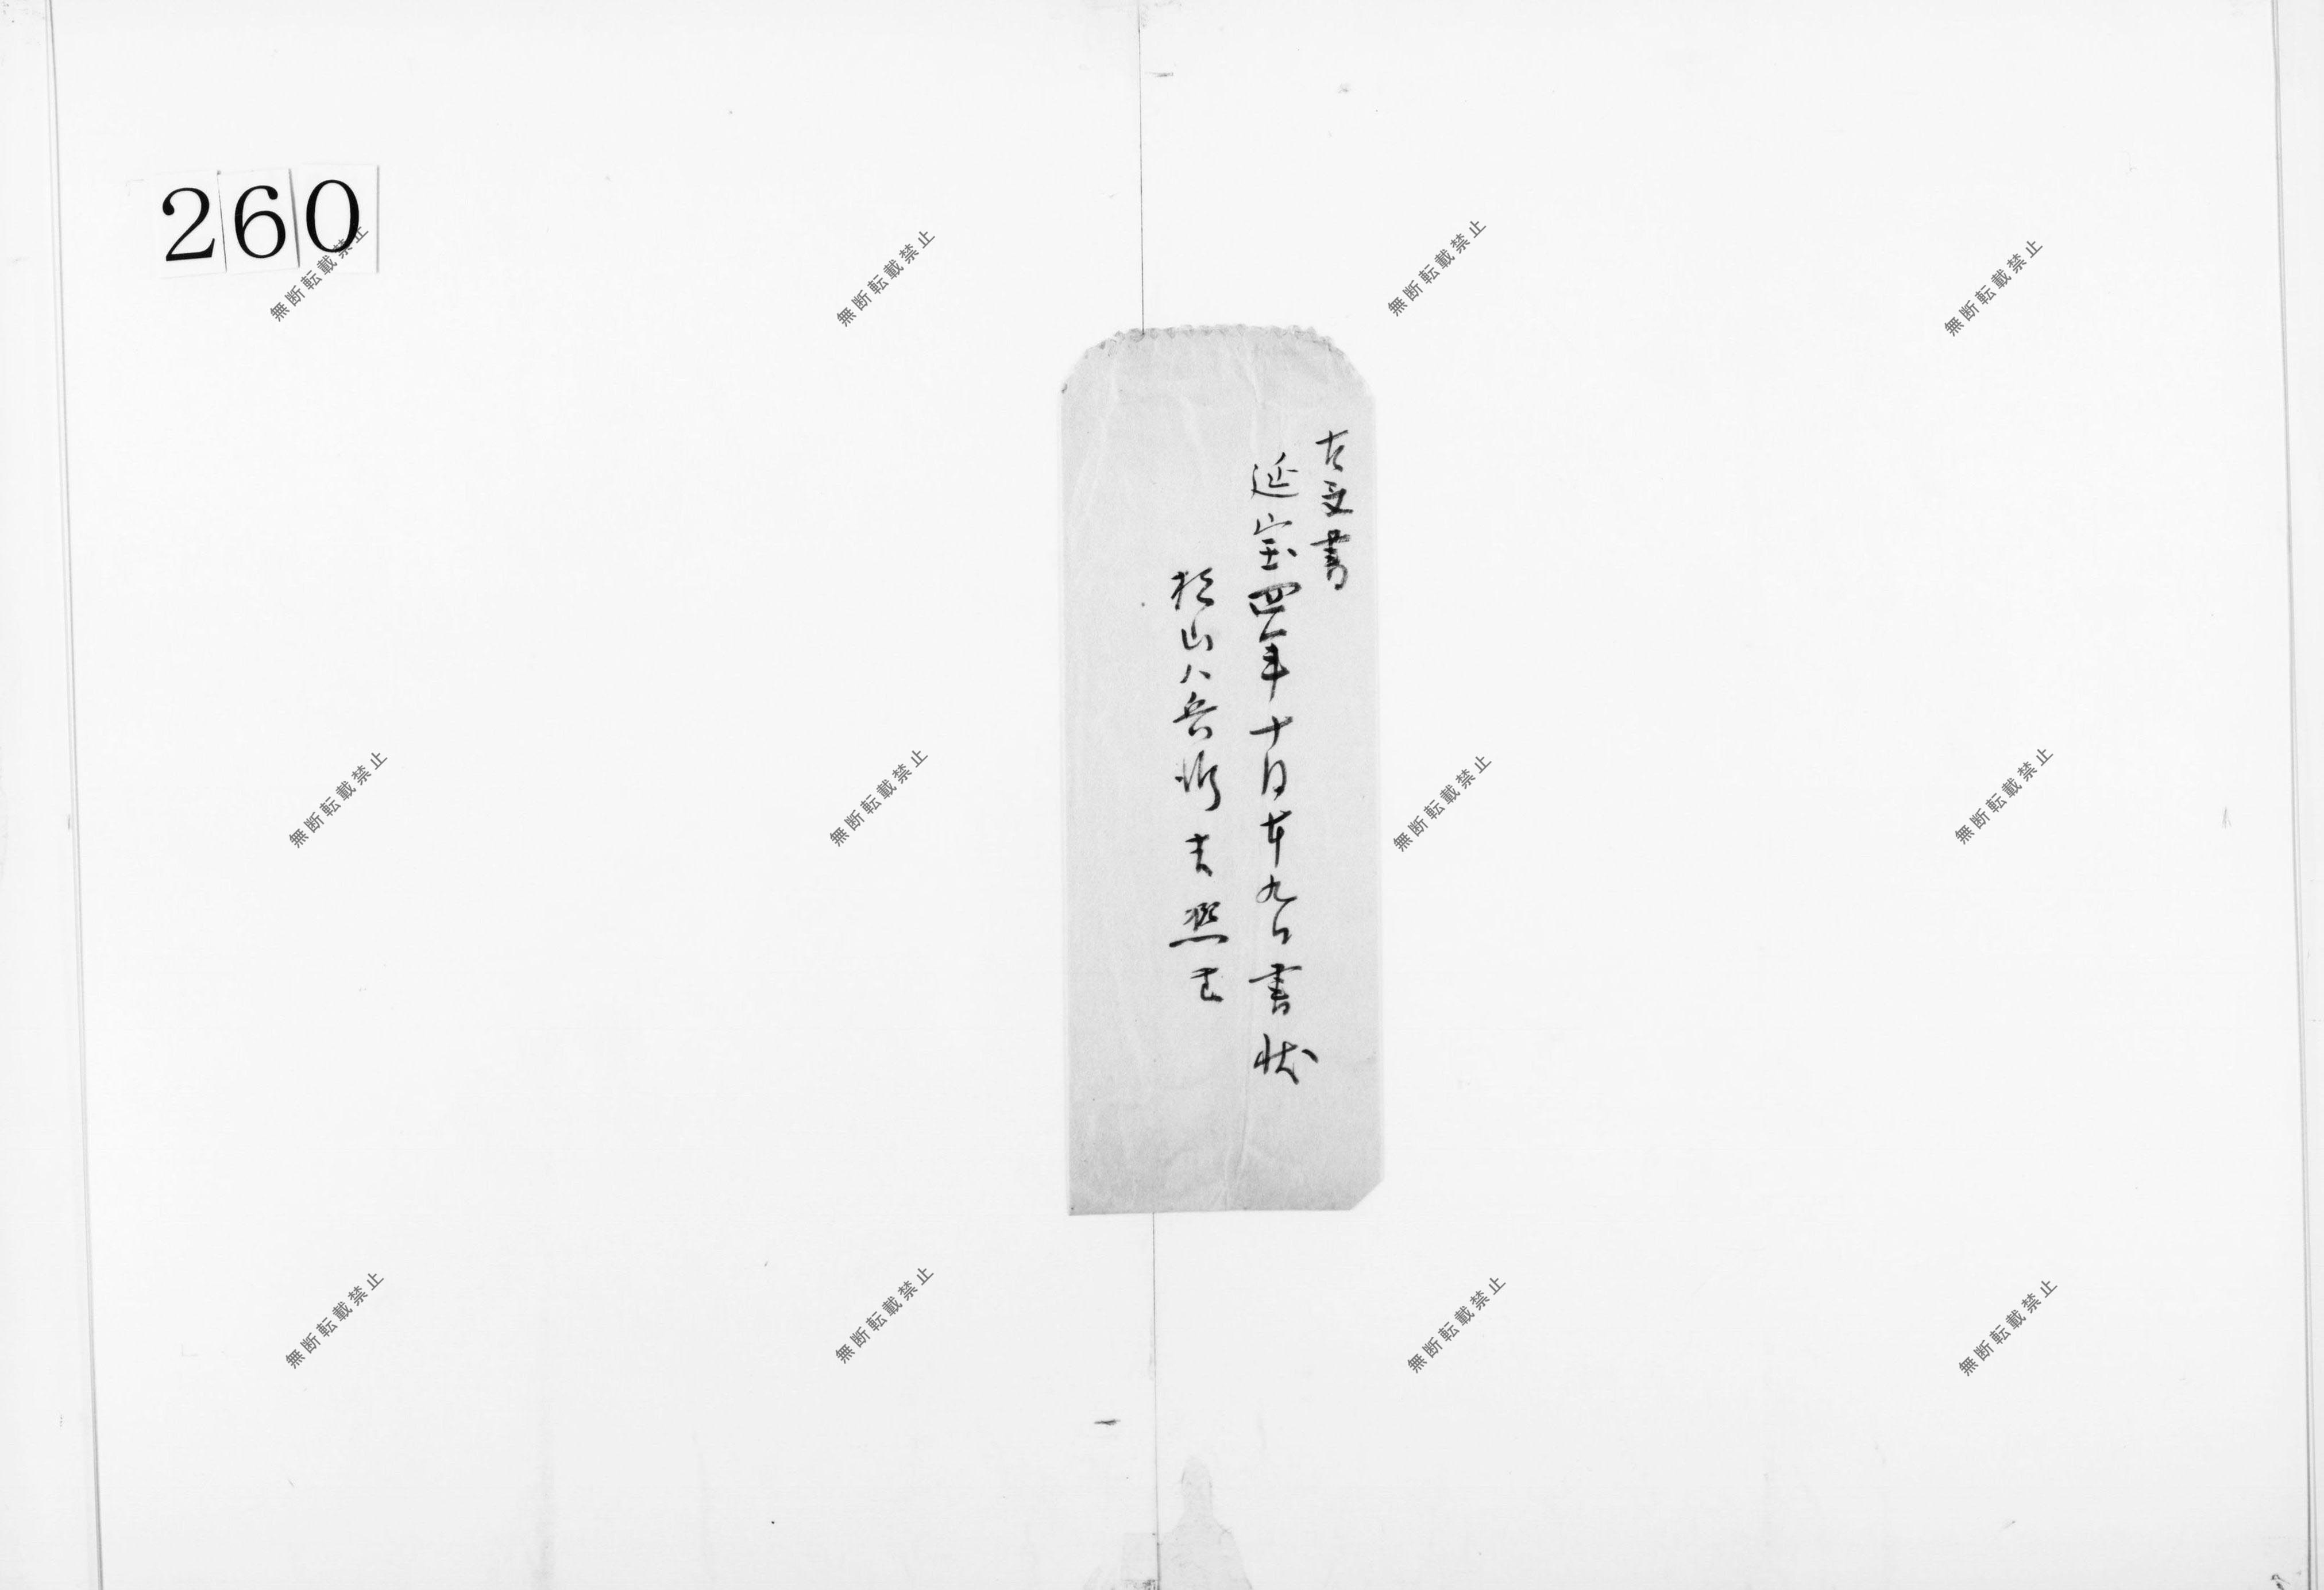 260
古文書
延宝四年十月廿九日書状
杉山八兵衛吉
無断転載禁止
無断転載禁止
無断転載禁止
無断転載禁止
無断転載禁止
無断転載禁止
無断転載禁止
無断転載禁止
無断転載禁止
無断転載禁止
無断転載禁止
無断転載禁止